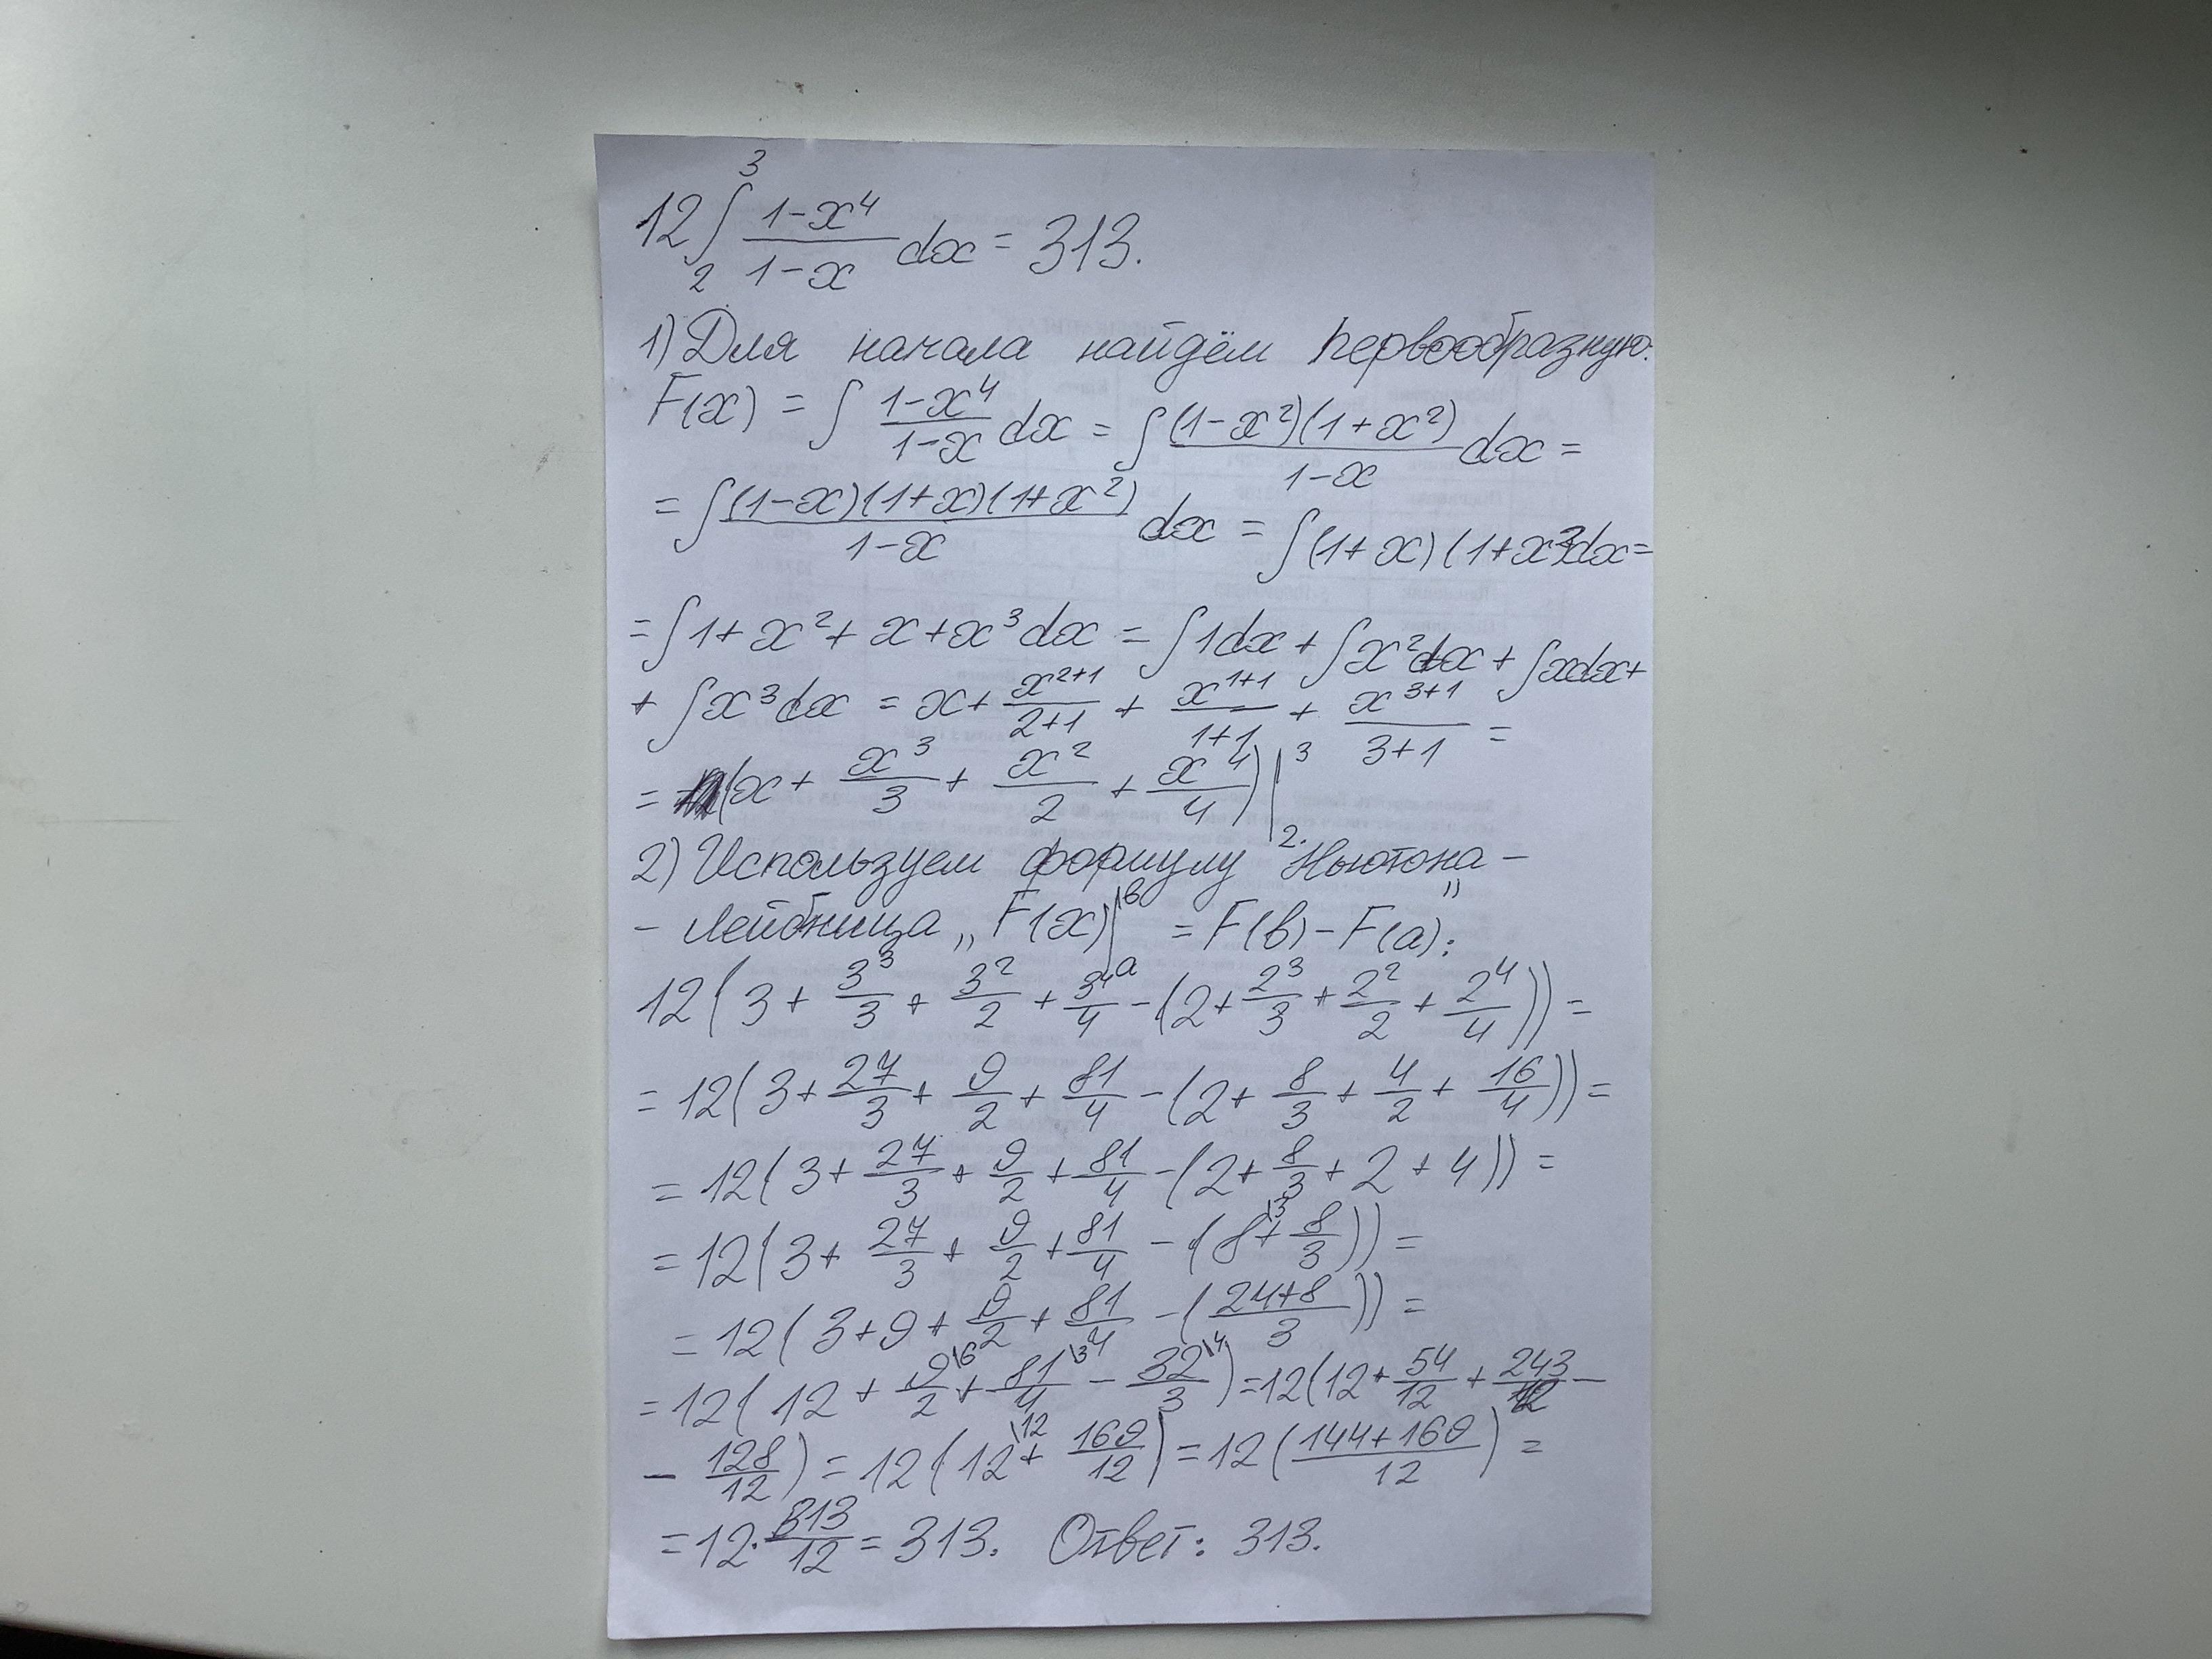 12∫₂³ (1-x⁴)/(1-x) dx = 313.
1) Для начала найдём первообразную:
F(x) = ∫ (1-x⁴)/(1-x) dx = ∫ ((1-x²)(1+x²))/(1-x) dx =
= ∫ ((1-x)(1+x)(1+x²))/(1-x) dx = ∫(1+x)(1+x²)dx =
= ∫1+x²+x+x³dx = ∫1dx + ∫x²dx + ∫xdx +
+ ∫x³dx = x + x²⁺¹/(2+1) + x¹⁺¹/(1+1) + x³⁺¹/(3+1) =
= (x + x³/3 + x²/2 + x⁴/4)|₂³.
2) Используем формулу Ньютона -
- Лейбница „F(x)|ₐᵇ = F(b) - F(a)”:
12(3 + 3³/3 + 3²/2 + 3⁴/4 - (2 + 2³/3 + 2²/2 + 2⁴/4)) =
= 12(3 + 27/3 + 9/2 + 81/4 - (2 + 8/3 + 4/2 + 16/4)) =
= 12(3 + 27/3 + 9/2 + 81/4 - (2 + 8/3 + 2 + 4)) =
= 12(3 + 27/3 + 9/2 + 81/4 - (8\³ + 8/3)) =
= 12(3 + 9 + 9/2 + 81/4 - ((24+8)/3)) =
= 12(12 + 9/2\⁶ + 81/4\³ - 32/3\⁴) = 12(12 + 54/12 + 243/12 -
- 128/12) = 12(12\¹² + 169/12) = 12((144+169)/12) =
= 12·313/12 = 313. Ответ: 313.